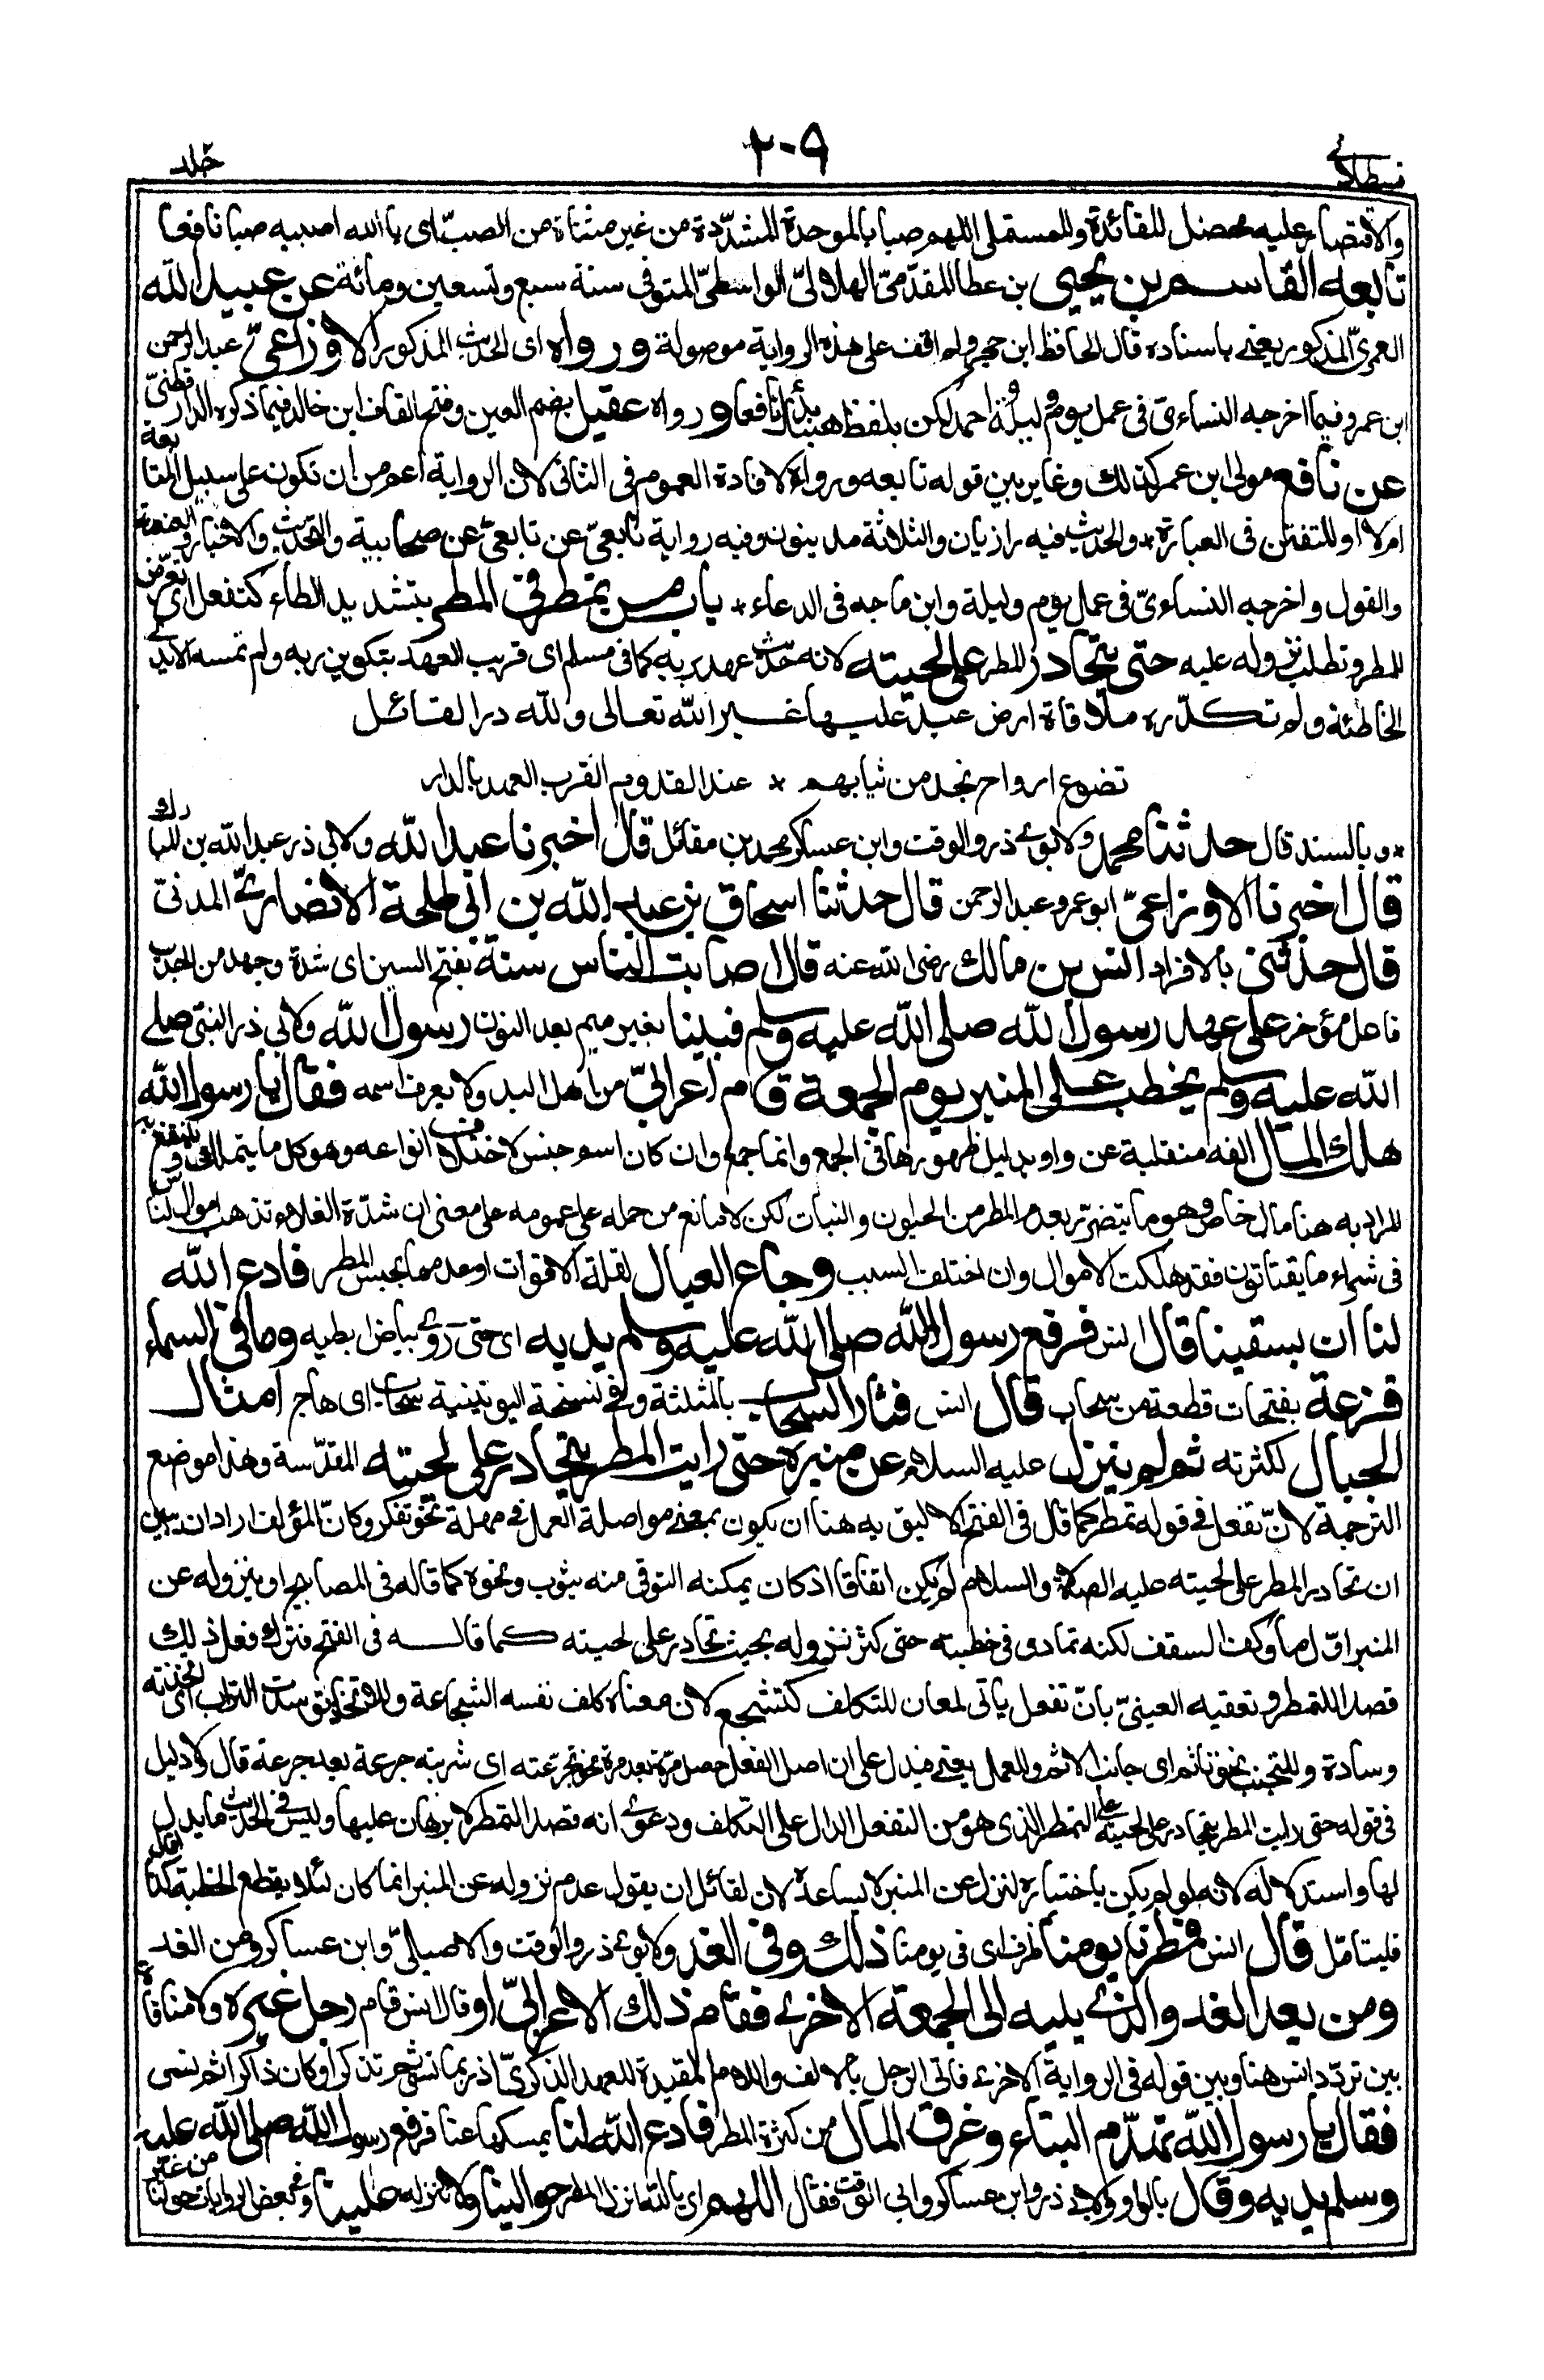 قسطلانى
٢٠٩
جلد
والاقتصار عليه محصل للفائدة وللمستملى اللهم صبا بالموحدة المشدّدة من غير مثناة من الصبّ اى يا الله اصببه صبا نافعا
تابعه القاسم بن يحيى بن عطا المقدّمىّ الهلالىّ الواسطىّ المتوفى سنة سبع وتسعين ومائة عن عبيد الله
العمرىّ المذكور يعنى باسناده قال الحافظ ابن حجر ولم اقف على هذه الرواية موصولة ورواه اى الحديث المذكور الاوزاعىّ عبد الرحمن
ابن عمرو فيما اخرجه النساءىّ فى عمل يوم وليلة واحمد لكن بلفظ هنيئا بدل نافعا ورواه عقيل بضم العين وفتح القاف ابن خالد فيما ذكره الدارقطنىّ
عن نافع مولى ابن عمر كذلك وغاير بين قوله تابعه ورواه لافادة العموم فى الثانى لان الرواية اعم من ان تكون على سبيل المتابعة
ام لا او للتفنن فى العبارة * والحديث فيه رازيان والثلاثة مدينون وفيه رواية تابعىّ عن تابعىّ عن صحابية والتحديث والاخبار والعنعنة
والقول واخرجه النساءىّ فى عمل يوم وليلة وابن ماجه فى الدعاء * باب من تمطر فى المطر بتشديد الطاء كتفعل اى تعرّض
للمطر وتطلب نزوله عليه حتى يتحادر المطر على لحيته لانه حديث عهد بربه كما فى مسلم اى قريب العهد بتكوين ربه ولم تمسه الايدى
الخاطئة ولم تكدّره ملاقاة ارض عبد عليها غير الله تعالى ولله در القائل
تضوع ارواح نجد من ثيابهم * عند القدوم لقرب العهد بالدار
* وبالسند قال حدثنا محمد ولابوى ذر والوقت وابن عساكر محمد بن مقاتل قال اخبرنا عبد الله ولابى ذر عبد الله بن المبارك
قال اخبرنا الاوزاعىّ ابو عمرو عبد الرحمن قال حدثنا اسحاق بن عبد الله بن ابى طلحة الانصارىّ المدنىّ
قال حدثنى بالافراد انس بن مالك رضى الله عنه قال اصابت الناس سنة بفتح السين اى شدة وجهد من الجدب
فاعل مؤخر على عهد رسول الله صلى الله عليه وسلم فبينا بغير ميم بعد النون رسول الله ولابى ذر النبى صلى
الله عليه وسلم يخطب على المنبر يوم الجمعة قام اعرابىّ من اهل البدو لا يعرف اسمه فقال يا رسول الله
هلك المال الفه منقلبة عن واو بدليل ظهورها فى الجمع وانما جمع وان كان اسم جنس لاختلاف انواعه وهو كل ما يتملك وينتفع به
المراد به هنا مال خاص وهو ما يتضرّر بعدم المطر من الحيوان والنبات لكن لا مانع من حمله على عمومه على معنى ان شدّة الغلاء تذهب اموال الناس
فى شراء ما يقتاتون فقد هلكت الاموال وان اختلف السبب وجاع العيال لقلة الاقوات او عدمها بحبس المطر فادع الله
لنا ان يسقينا قال انس فرفع رسول الله صلى الله عليه وسلم يديه اى حتى رؤى بياض ابطيه وما فى السماء
قزعة بفتحات قطعة من سحاب قال انس فثار السحاب بالمثلثة وفى نسخة اليونينية سحاب اى هاج امثال
الجبال لكثرته ثم لم ينزل عليه السلام عن منبره حتى رايت المطر يتحادر على لحيته المقدّسة وهذا موضع
الترجمة لانّ تفعل فى قوله تمطر كما قال فى الفتح الاليق به هنا ان يكون بمعنى مواصلة العمل فى مهلة نحو تفكر وكانّ المؤلف اراد ان يبين
ان تحادر المطر على لحيته عليه الصلاة والسلام لم يكن اتفاقا اذ كان يمكنه التوقى منه بثوب ونحوه كما قاله فى المصابيح او بنزوله عن
المنبر اوّل ما وكف السقف لكنه تمادى فى خطبته حتى كثر نزوله بحيث تحادر على لحيته كما قاله فى الفتح فترك فعل ذلك
قصدا للتمطر وتعقبه العينىّ بانّ تفعل ياتى لمعان للتكلف كتشجع لان معناه كلف نفسه الشجاعة وللاتخاذ نحو توسدت التراب اى اتخذته
وسادة وللتجنب نحو تاثم اى جانب الاثم وللعمل يعنى فيدل على ان اصل الفعل حصل مرة بعد مرة نحو تجرّعته اى شربته جرعة بعد جرعة قال ولا دليل
فى قوله حتى رايت المطر يتحادر على لحيته على التمطر الذى هو من التفعل الدال على التكلف ودعوى انه قصد التمطر لا برهان عليها وليس فى الحديث ما يدل
لها واستدلاله لانه لو لم يكن باختياره لنزل عن المنبر لا يساعده لان لقائل ان يقول عدم نزوله عن المنبر انما كان لئلا يقطع الخطبة كذا قال
فليتامّل قال انس فمطرنا يومنا ظرف اى فى يومنا ذلك وفى الغد ولابوى ذر والوقت والاصيلىّ وابن عساكر ومن الغد
ومن بعد الغد والذى يليه الى الجمعة الاخرى فقام ذلك الاعرابىّ او قال انس قام رجل غيره ولا منافاة
بين تردّد انس هنا وبين قوله فى الرواية الاخرى فاتى الرجل بالالف واللام المقيدة للعهد الذكرىّ اذ ربما نسى ثم تذكر او كان ذاكرا ثم نسى
فقال يا رسول الله تهدّم البناء وغرق المال من كثرة المطر فادع الله لنا يمسكها عنا فرفع رسول الله صلى الله عليه
وسلم يديه وقال بالواو ولابى ذر وابن عساكر وابى الوقت فقال اللهم اى يا الله انزل المطر حوالينا ولا تنزله علينا وفى بعض الروايات حولنا من غير